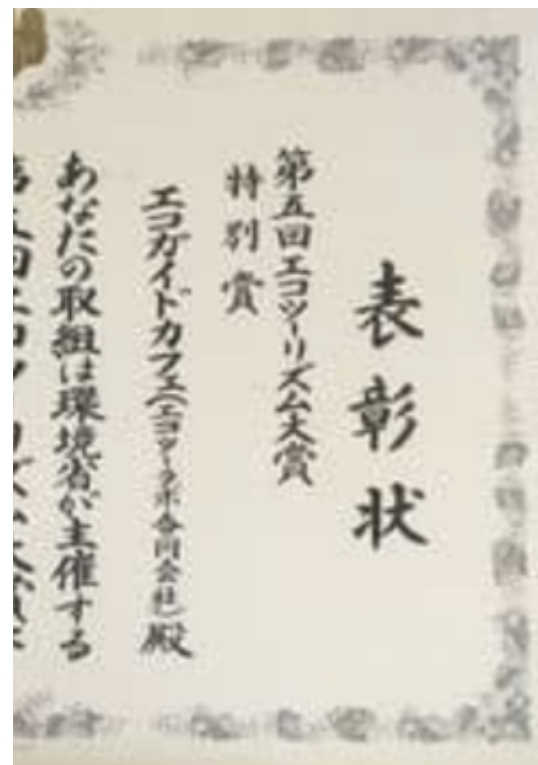 表彰状
第五回エコツーリズム大賞
特別賞
エコガイドカフェ(エコツーラボ合同会社)殿
あなたの取組は環境省が主催する
第五回エコツーリズム大賞